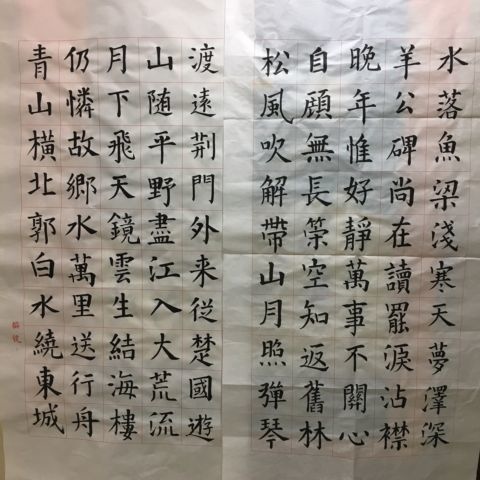 水落魚梁淺寒天夢澤深
羊公碑尚在讀罷淚沾襟
晚年惟好靜萬事不關心
自顧無長策空知返舊林
松風吹解帶山月照彈琴
渡遠荆門外来從楚國遊
山随平野盡江入大荒流
月下飛天鏡雲生結海樓
仍憐故鄉水萬里送行舟
青山橫北郭白水繞東城